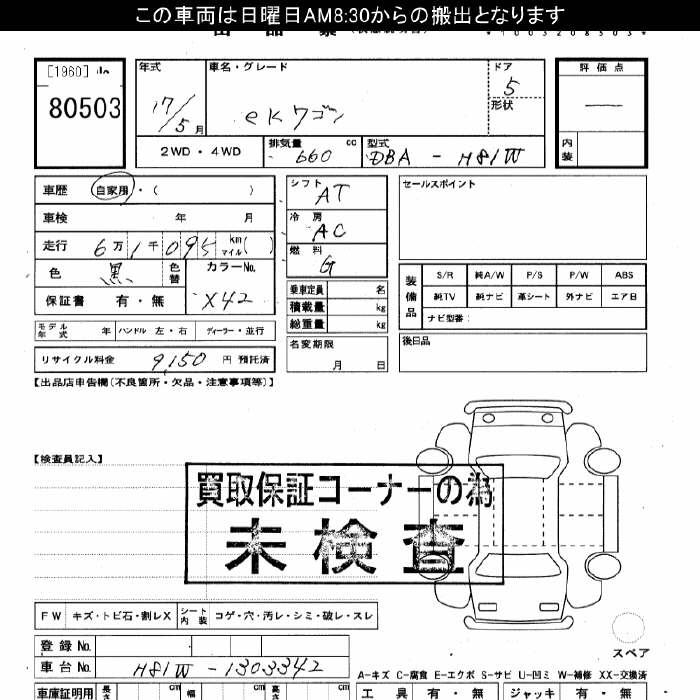 この車両は日曜日AM8:30からの搬出となります
[1960]
80503
年式
17/5月
車名・グレード
eKワゴン
ドア
5
形状
評価点
2WD・4WD
排気量 660 cc
型式
DBA - H81W
内装
車歴 自家用・( )
車検 年 月
走行 6万1千095 km マイル( )
色 黒 色替
カラーNo. X42
保証書 有・無
シフト AT
冷房 AC
燃料 G
乗車定員 名
積載量 kg
総重量 kg
セールスポイント
装備品
S/R 純A/W P/S P/W ABS
純TV 純ナビ 革シート 外ナビ エア日
ナビ型番:
モデル年式 年 ハンドル 左・右 ディーラー・並行
名変期限 月 日
後日品
リサイクル料金 9,150 円 預託済
【出品店申告欄(不良箇所・欠品・注意事項等)】
【検査員記入】
買取保証コーナーの為
未検査
FW キズ・トビ石・割レX
シート内装 コゲ・穴・汚レ・シミ・破レ・スレ
スペア
登録No.
車台No. H81W-1303342
A-キズ C-腐食 E-エクボ S-サビ U-凹ミ W-補修 XX-交換済
車庫証明用 長さ cm 幅 cm 高さ cm
工具 有・無 ジャッキ 有・無